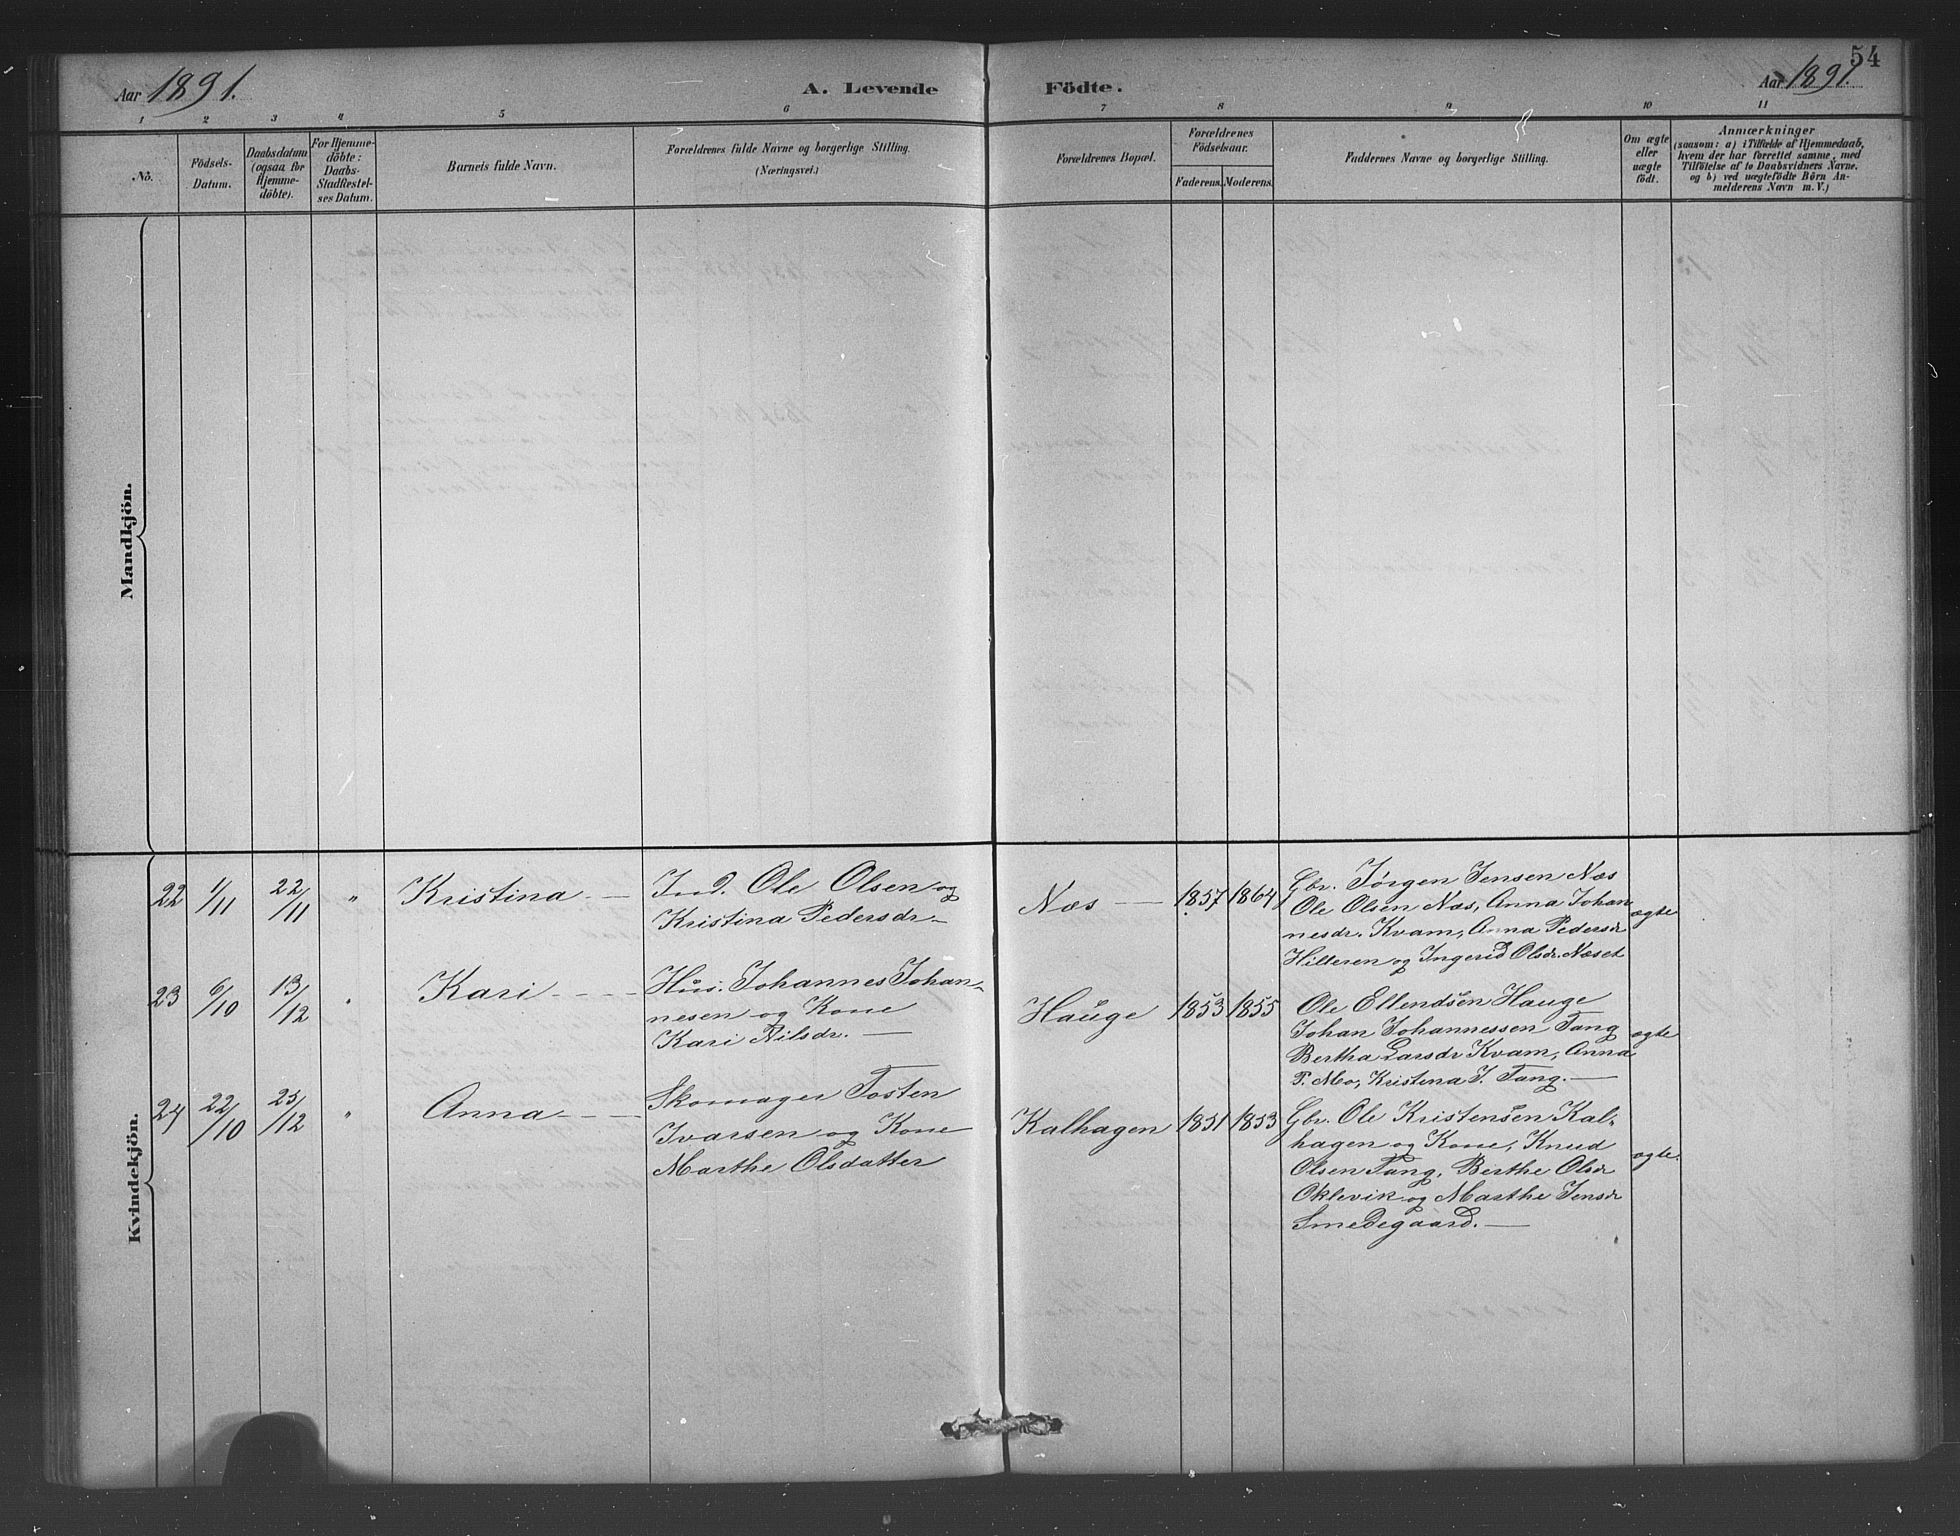 54
Aar 1891.
A. Levende Födte.
Aar 1891.
1 2 3 4 5 6 7 8 9 10 11
No.
Födsels-
Datum.
Daabsdatum
(ogsaa for
Hjemme-
döbte).
For Hjemme-
döbte:
Daabs-
Stadfæstel-
ses Datum.
Barnets fulde Navn.
Forældrenes fulde Navne og borgerlige Stilling.
(Næringsvei.)
Forældrenes Bopæl.
Forældrenes
Födselsaar.
Faderens. Moderens.
Faddernes Navne og borgerlige Stilling.
Om ægte
eller
uægte
födt.
Anmærkninger
(saasom: a) i Tilfælde af Hjemmedaab,
hvem der har forrettet samme, med
Tilföielse af to Daabsvidners Navne.
og b) ved uægtefödte Börn An-
melderens Navn m. V.)
Mandkjön.
Kvindekjön.
22 1/11 22/11 " Kristina
Ind. Ole Olsen og
Kristina Pedersdr.
Næs 1857 1864
Gbr. Jørgen Jensen Næs
Ole Olsen Næs, Anna Johan
nesdr. Kvam, Anna Pedersdr
Hilleren og Ingerid Olsdr. Næset
ægte
23 6/10 13/12 " Kari
Hus. Johannes Johan-
nesen og Kone
Kari Nilsdr.
Hauge 1853 1855
Ole Ellendsen Hauge
Johan Johannessen Tang
Bertha Larsdr Kvam, Anna
P. Mo, Kristina J. Tang.
ægte
24 22/10 25/12 " Anna
Skomager Tosten
Ivarsen og Kone
Marthe Olsdatter
Kalhagen 1851 1853
Gbr. Ole Kristensen Kal-
hagen og Kone, Knud
Olsen Tang, Berthe Olsdr
Oklevik og Marthe Jensdr
Smedegaard.
ægte.